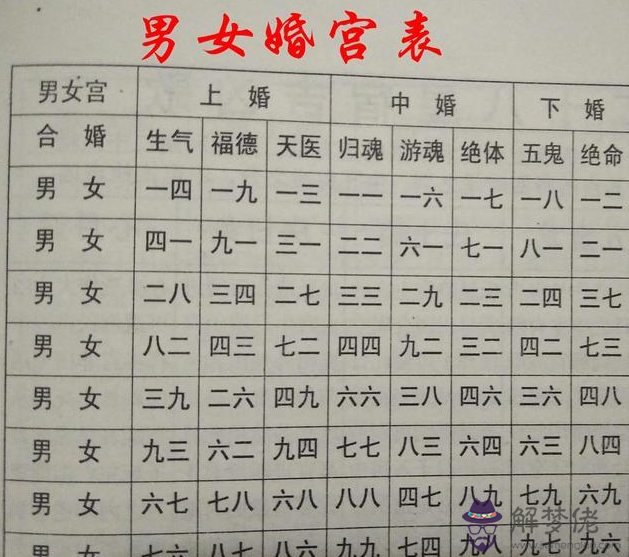 男女婚宫表
男女宫 上 婚 中 婚 下 婚
合 婚 生气 福德 天医 归魂 游魂 绝体 五鬼 绝命
男 女 一四 一九 一三 一一 一六 一七 一八 一二
男 女 四一 九一 三一 二二 六一 七一 八一 二一
男 女 二八 三四 二七 三三 二九 二三 二四 三七
男 女 八二 四三 七二 四四 九二 三二 四二 七三
男 女 三九 二六 四九 六六 三八 四六 三六 四八
男 女 九三 六二 九四 七七 八三 六四 六三 八四
男 女 六七 七八 六八 八八 四七 八九 七九 六九
男 女 七六 八七 八六 九九 七四 九八 九七 九六
解梦佬